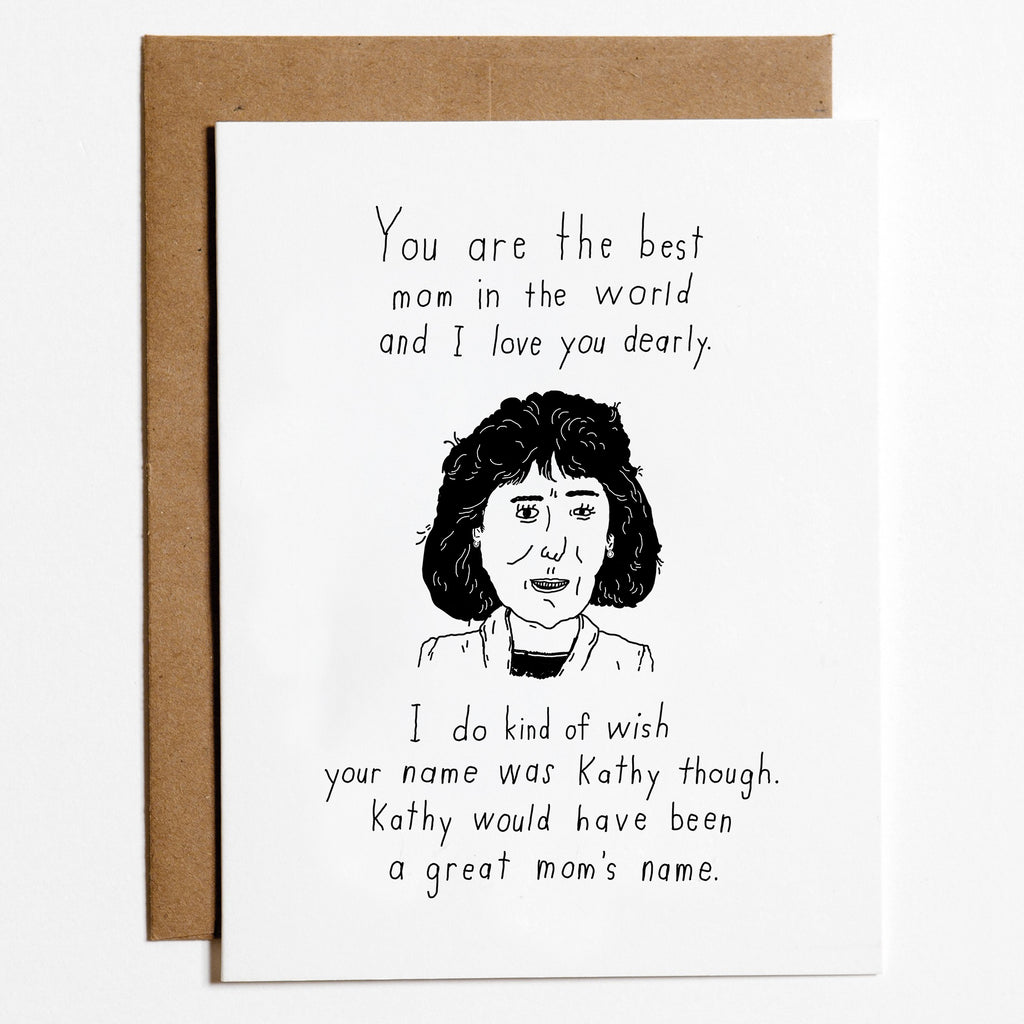 You are the best
mom in the world
and I love you dearly.
I do kind of wish
your name was Kathy though.
Kathy would have been
a great mom's name.